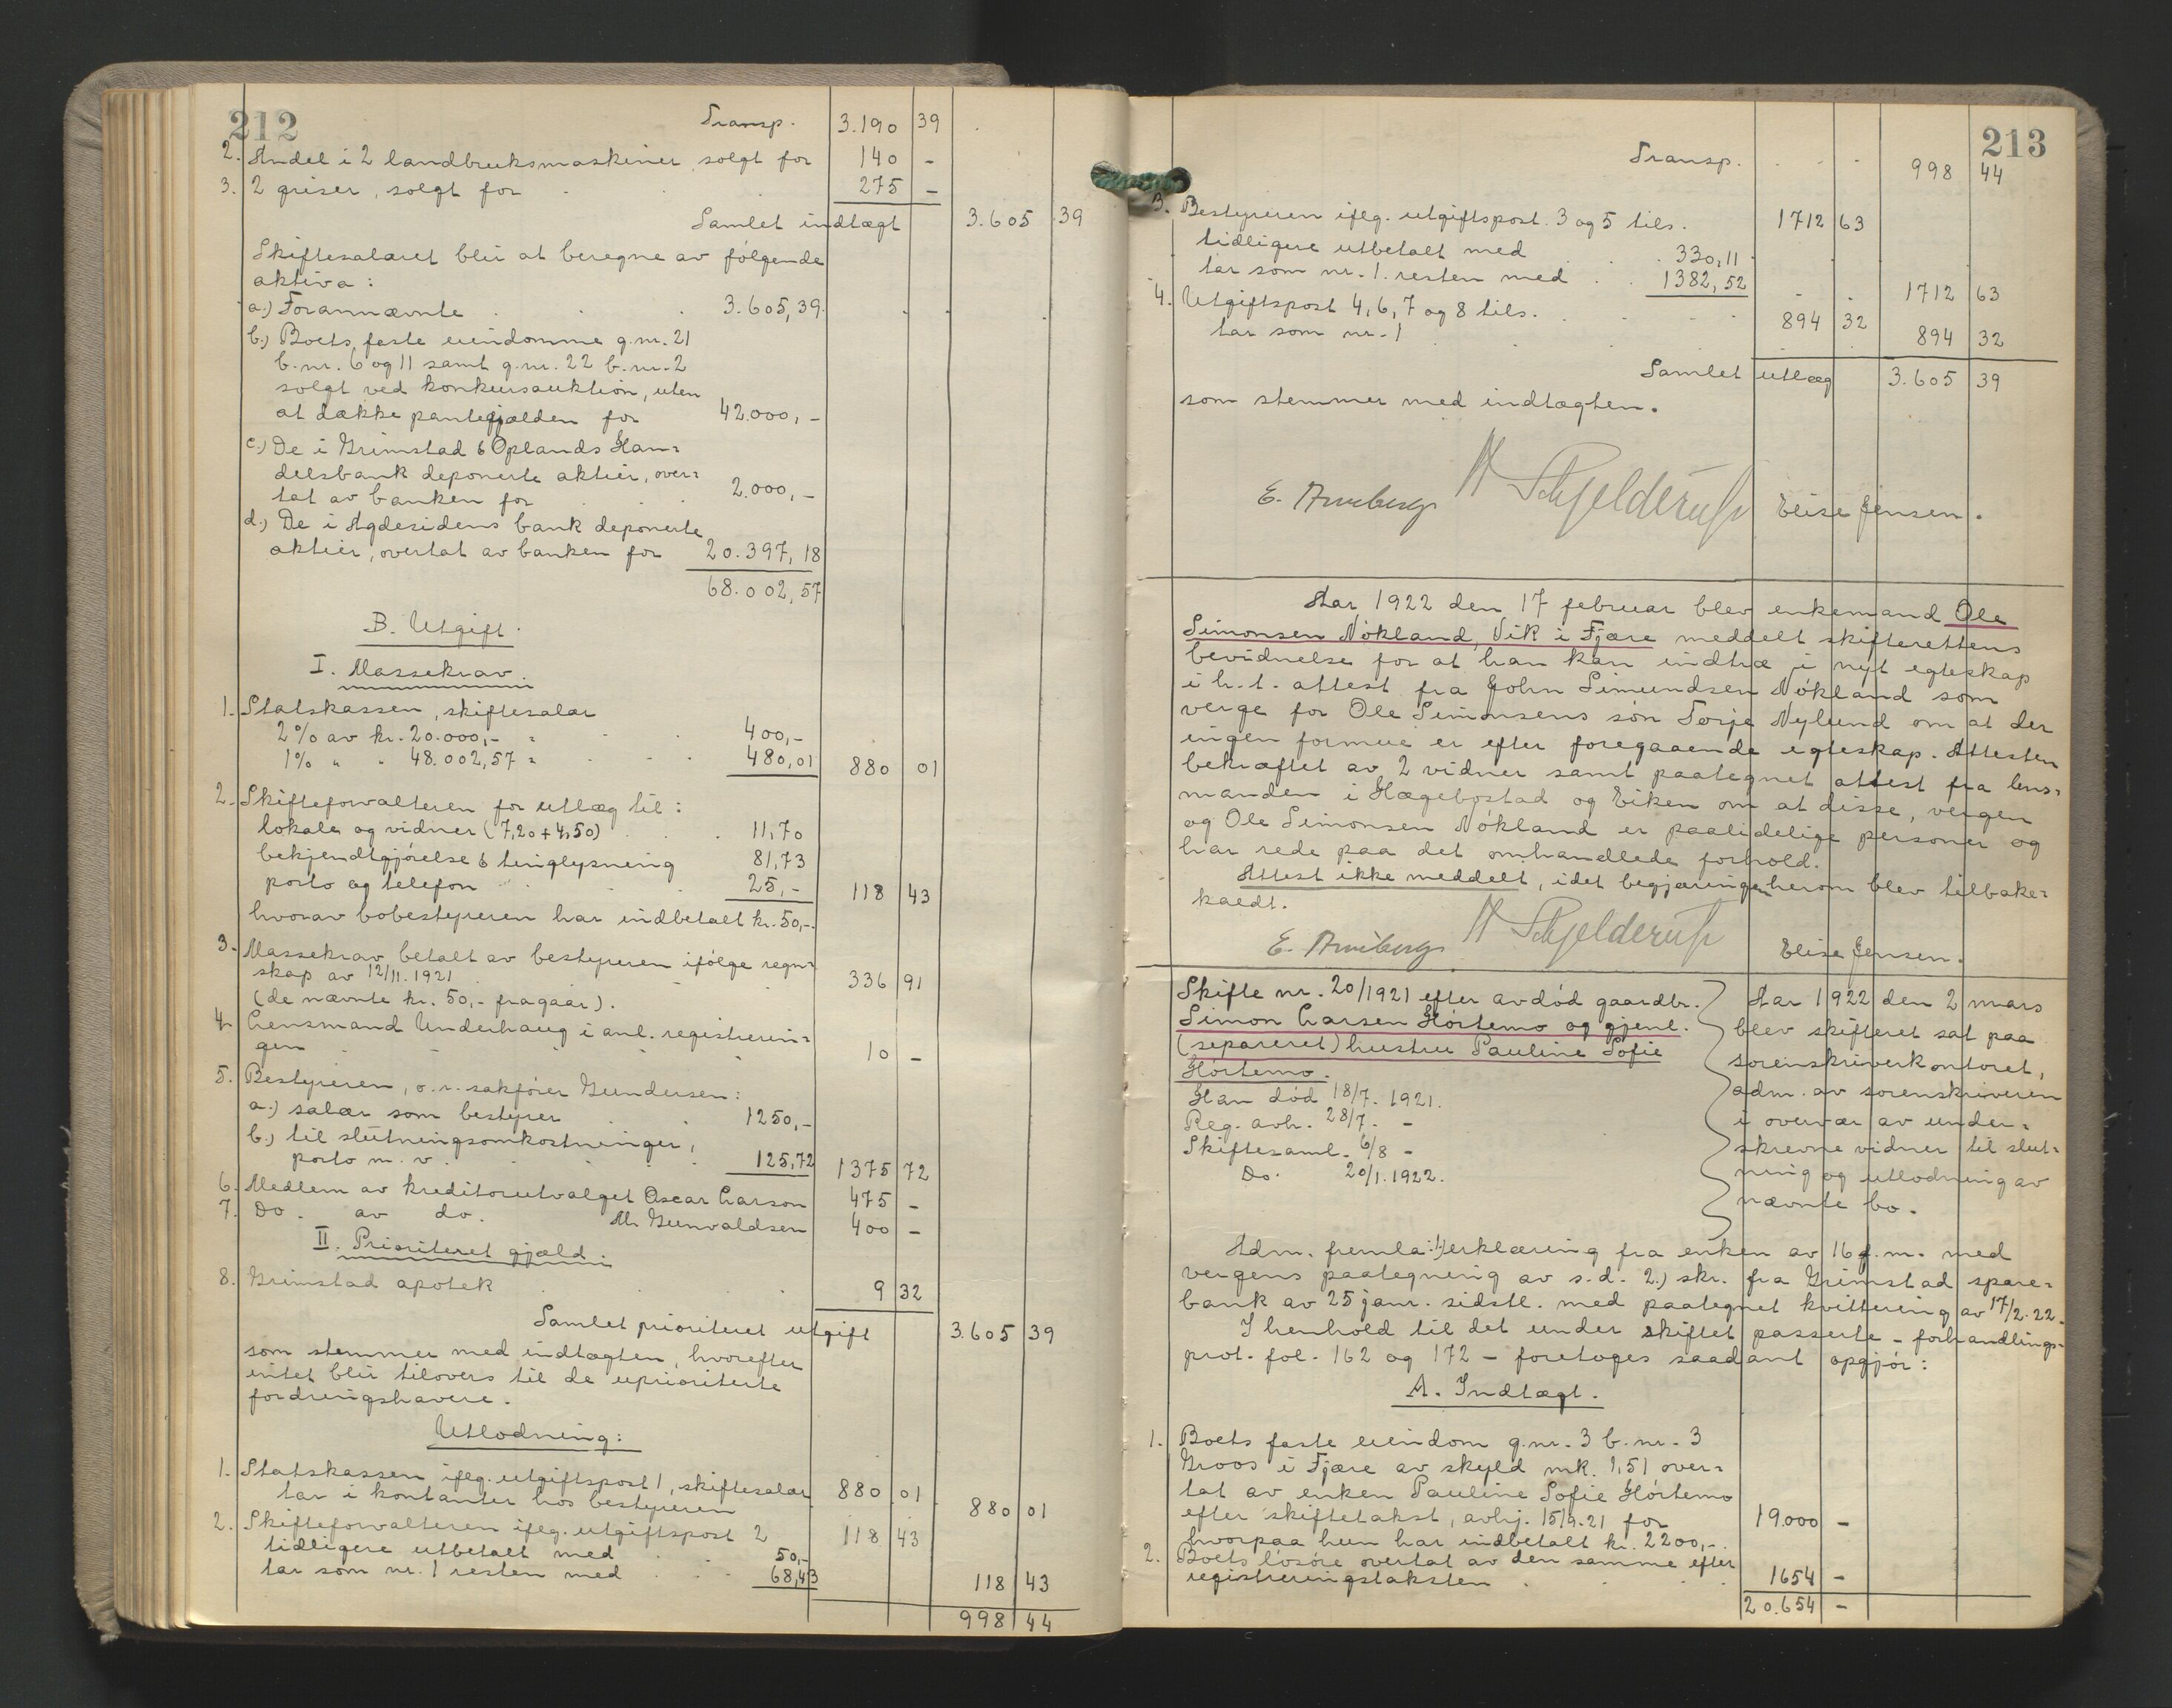 212
Transp. 3.190 39
2. Andel i 2 landbruksmaskiner, solgt for 140 -
3. 2 griser, solgt for 275 -
Samlet indtægt 3.605 39
Skiftesalæret blir at beregne av følgende
aktiva:
a.) Forannævnte 3.605,39
b.) Boets faste eiendomme g.nr. 21
b.nr. 6 og 11 samt g.nr. 22 b.nr. 2
solgt ved konkursauktion, uten
at dække pantegjælden for 42.000,-
c.) De i Grimstad & Oplands Han=
delsbank deponerte aktier, over=
tat av banken for 2.000,-
d.) De i Agdesidens bank deponerte
aktier, overtat av banken for 20.397,18
68.002,57
B. Utgift.
I. Massekrav.
1. Statskassen, skiftesalær
2% av kr. 20.000,- = 400,-
1% " - 48.002,57 = 480,01 880 01
2. Skifteforvalteren for utlæg til:
lokale og vidner (7,20 + 4,50) 11,70
bekjendtgjørelse & tinglysning 81,73
porto og telefon 25,- 118 43
hvorav bobestyreren har indbetalt kr. 50,-.
3. Massekrav betalt av bestyreren ifølge regn=
skap av 12/11. 1921 336 91
(de nævnte kr. 50,- fragaar).
4. Lensmand Underhaug i anl. registrerin=
gen 10 -
5. Bestyreren, o.r. sakfører Gundersen:
a.) salær som bestyrer 1250,-
b.) til slutningsomkostninger,
porto m.v. 125,72 1375 72
6. Medlem av kreditorutvalget Oscar Larson 475 -
7. Do. av do. M. Gunvaldsen 400 -
II. Prioritert gjæld.
8. Grimstad apotek 9 32
Samlet prioritert utgift 3.605 39
som stemmer med indtægten, hvorefter
intet blir tilovers til de uprioriterte
fordringshavere.
Utlodning:
1. Statskassen ifølg. utgiftspost 1, skiftesalær 880 01
tar i kontanter hos bestyreren 880 01
2. Skifteforvalteren ifølg. utgiftspost 2 118 43
tidligere utbetalt med 50,-
tar som nr. 1 resten med 68,43 118 43
998 44
213
Transp. 998 44
3. Bestyreren ifølg. utgiftspost 3 og 5 tils. 1712 63
tidligere utbetalt med 330,11
tar som nr. 1. resten med 1382,52 1712 63
4. Utgiftspost 4, 6, 7 og 8 tils. 894 32
tar som nr. 1 894 32
Samlet utlæg 3.605 39
som stemmer med indtægten.
E. Arneberg H Schjelderup Elise Jensen.
Aar 1922 den 17 februar blev enkemand Ole
Simonsen Nökland, Vik i Fjære meddelt skifterettens
bevidnelse for at han kan indtræ i nyt egteskap
i h.t. attest fra John Simundsen Nökland som
verge for Ole Simonsens søn Torje Nylund om at der
ingen formue er efter foregaaende egteskap. Attesten
bekræftet av 2 vidner samt paategnet attest fra lens=
manden i Hægebostad og Eiken om at disse, vergen
og Ole Simonsen Nökland er paalidelige personer og
har rede paa det omhandlede forhold.
Attest ikke meddelt, idet begjæringen herom blev tilbake=
kaldt.
E. Arneberg H Schjelderup Elise Jensen.
Skifte nr. 20/1921 efter avdød gaardbr.
Simon Larsen Hörtemo og gjenl.
(separeret) hustru Pauline Sofie
Hörtemo.
Han død 18/7. 1921.
Reg. avh. 28/7. -
Skiftesaml. 6/8 -
Do. 20/1. 1922.
Aar 1922 den 2 mars
blev skifteret sat paa
sorenskriverkontoret,
adm. av sorenskriveren
i overvær av under=
skrevne vidner til slut=
ning og utlodning av
nævnte bo.
Adm. fremla: 1) erklæring fra enken av 16 f.m. med
vergens paategning av s.d. 2.) skr. fra Grimstad spare=
bank av 25 janr. sidstl. med paategnet kvittering av 17/2. 22.
I henhold til det under skiftet passerte - forhandlings=
prot. fol. 162 og 172 - foretoges saadant opgjør:
A. Indtægt.
1. Boets faste eiendom g.nr. 3 b.nr. 3
Groos i Fjære av skyld mk. 1,51 over=
tat av enken Pauline Sofie Hörtemo
efter skiftetakst, avhj. 15/9. 21 for 19.000 -
hvorpaa hun har indbetalt kr. 2200,-.
2. Boets løsøre overtat av den samme efter
registreringstaksten 1654 -
20.654 -